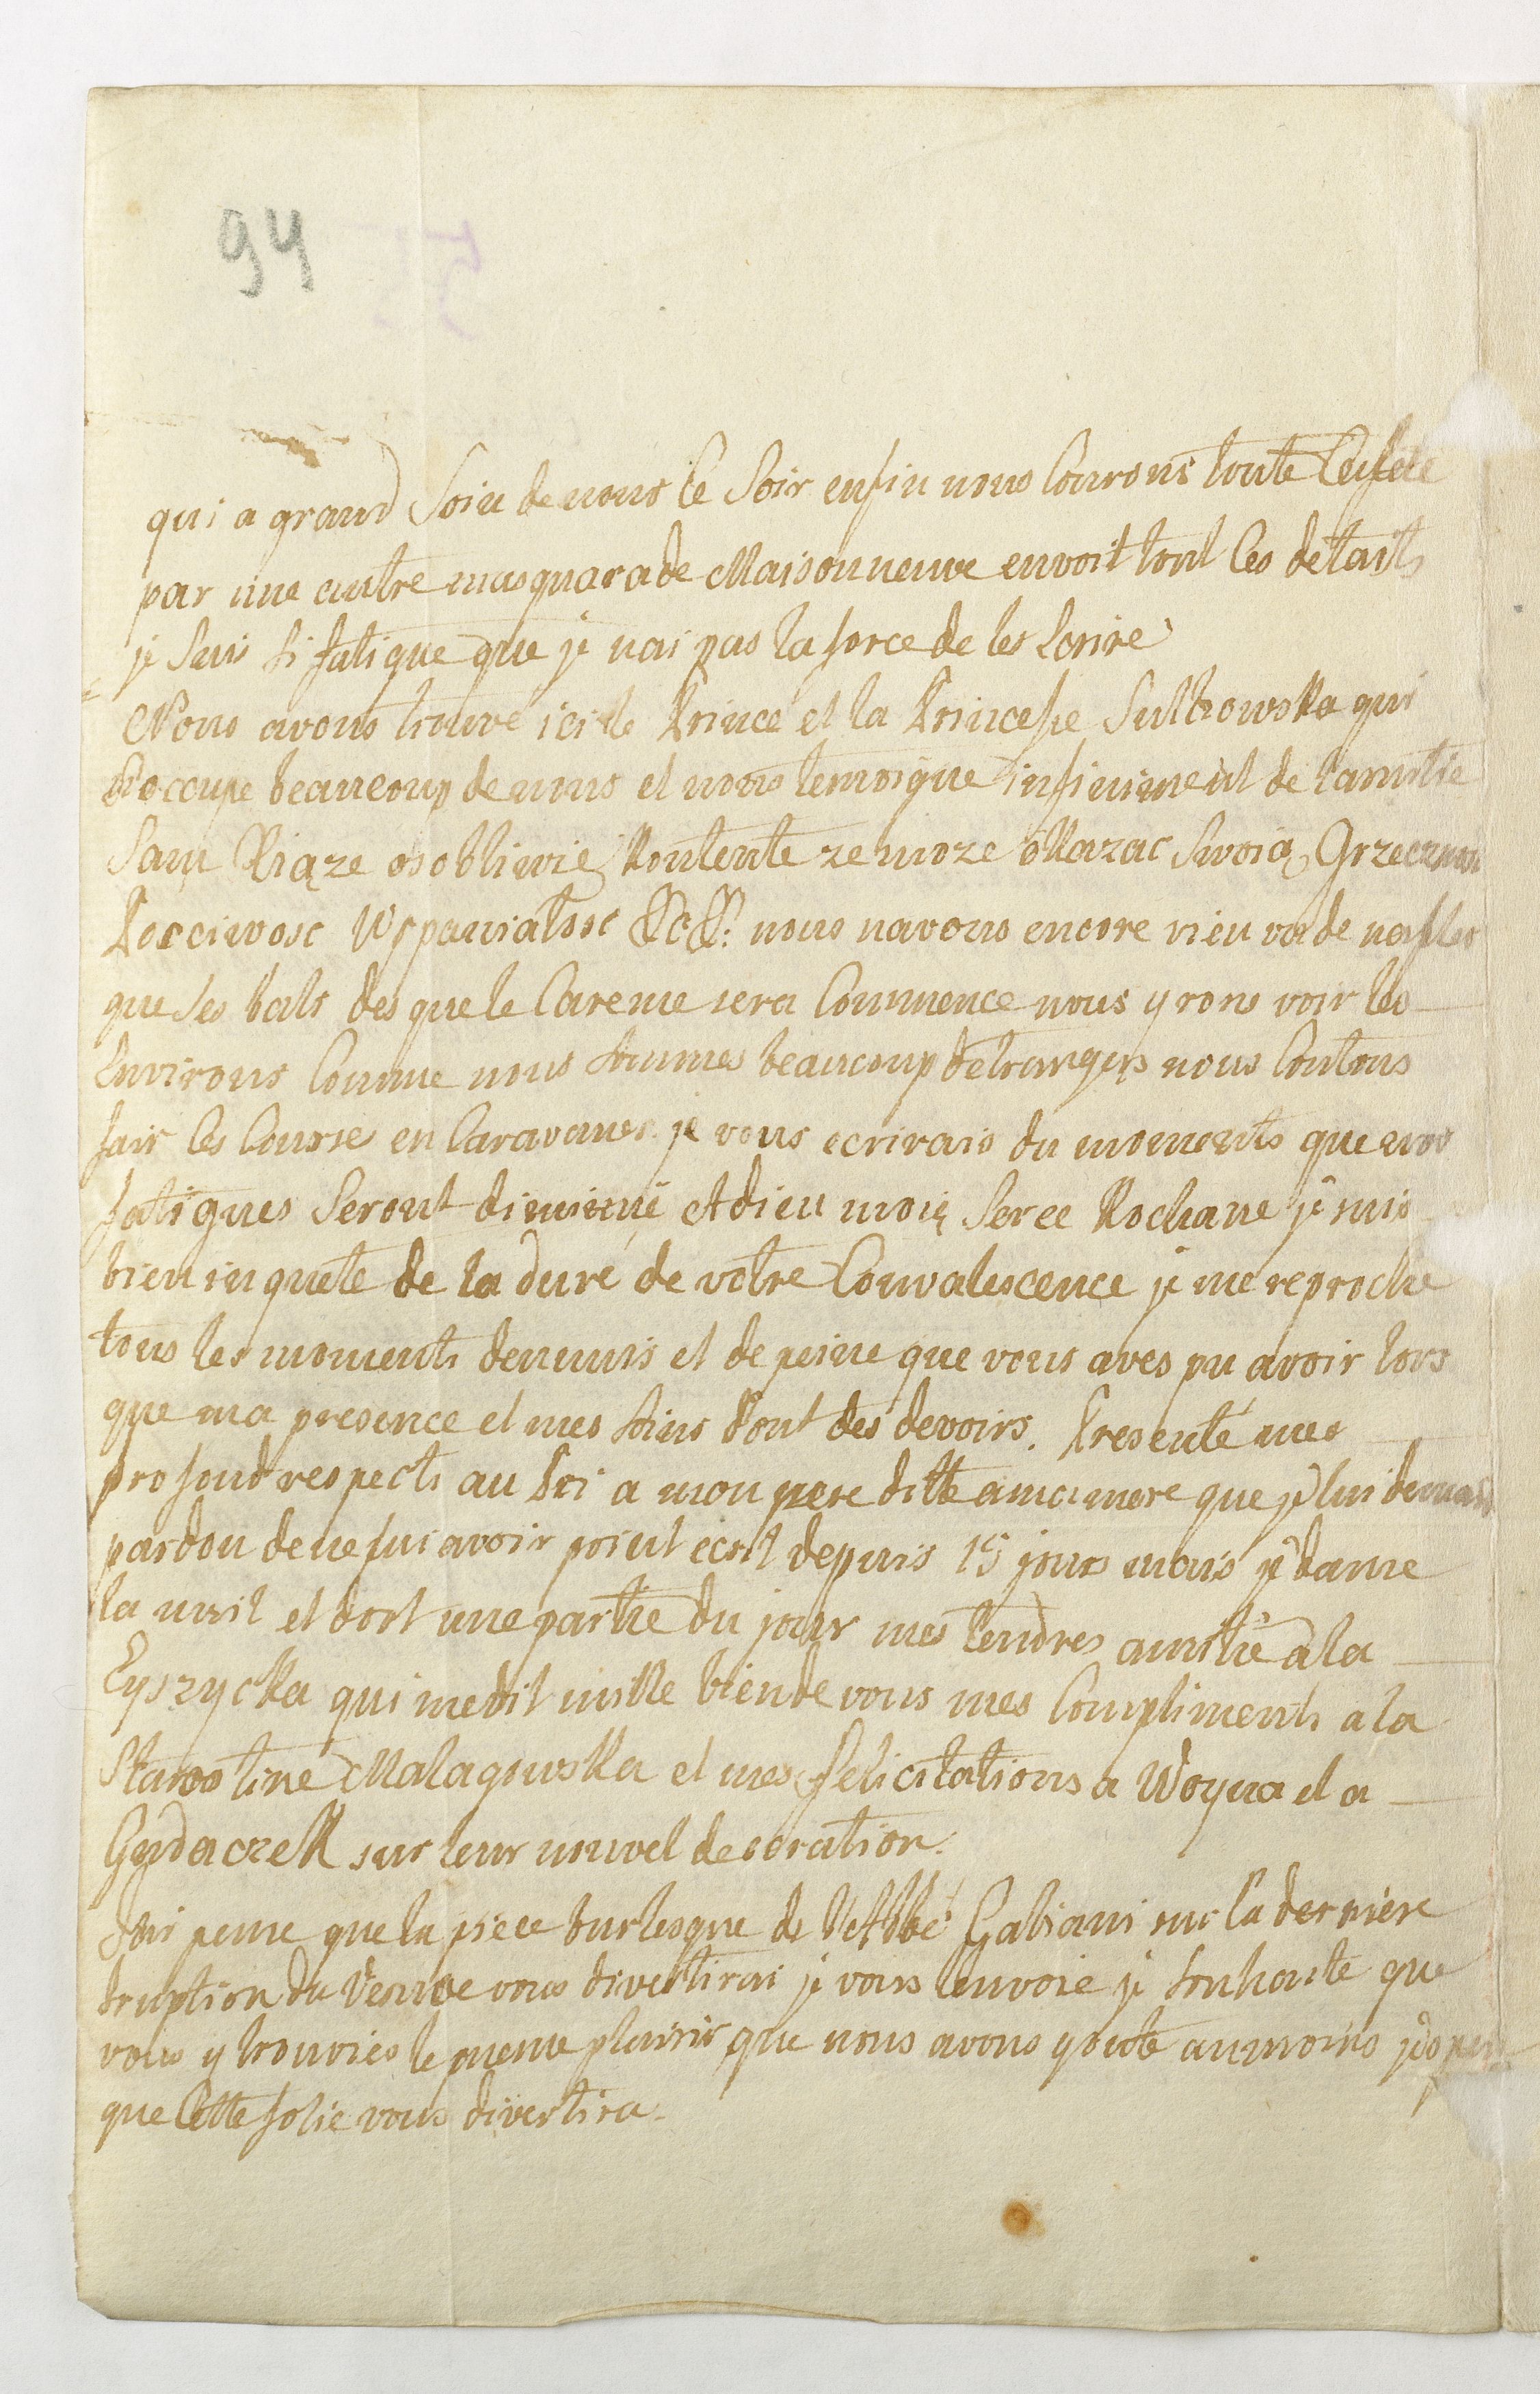 94
qui a grand Soin de nous Ce Soir enfin nous Courons toute
par une autre masquarade Maisonneuve envoit tout Ces detaits
je Suis Si fatigue que je nai pas la force de les Ecrire
Nous avons trouvé ici le Prince et la Princesse Sulkowska qui
Soccupe beaucoup de nous et nous temoigne infiniment de l'amitie
Sam Xiąze osobliwie Kontente ze moze okazac Swoią
Poсciwosc Wspaniałosc &c&: nous navons encore rien vu de naples
que Ses bals des que le Careme sera Commence nous yrons voir les
Environs Comme nous Sommes beaucoup detrangers nous Contons
fair Ces Courses en Caravanes. je vous ecrirais du moments que mes
fatigues Seront diminué Adieu moie Serce Kochane je suis
bien inquete de la duré de votre Convalescence je me reproche
tous les moments dennuis et de peine que vous aves pu avoir lors
que ma presence et mes Soins Sont des devoirs. Presenté mes
profond respects au Roi a mon pere ditte a ma mere que je lui demand
pardon de ne lui avoir point ecrit depuis 15 jours mais je danse
la nuit et dort une partie du jour mes tendres amitié a la
Eyszycka qui me dit mille bien de vous mes Compliments a la
Starostine Malagowska et mes felicitations a Woyna et a
Gydaczek sur leur nouvel decoration.
Jai pense que la piece burlesque de l'Abbé Galiani sur la derniere
Eruption du Vesuve vous divertirai je vous lenvoie je Souhaite que
vous y trouvies le meme plaisir que nous avons goute aumoins
que Cette folie vous divertira.